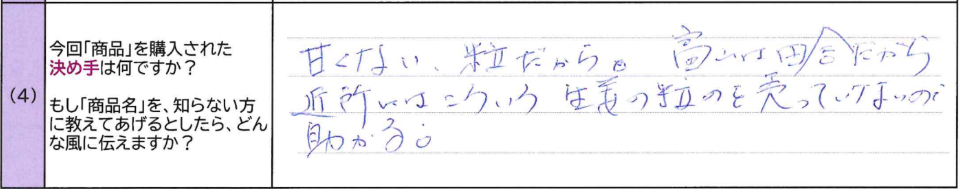 (4)
今回「商品」を購入された
決め手は何ですか？
もし「商品名」を、知らない方
に教えてあげるとしたら、どん
な風に伝えますか？
甘くない、粒だから。富山は田舎だから
近所にはこういう生姜の粒のを売っていないので
助かる。